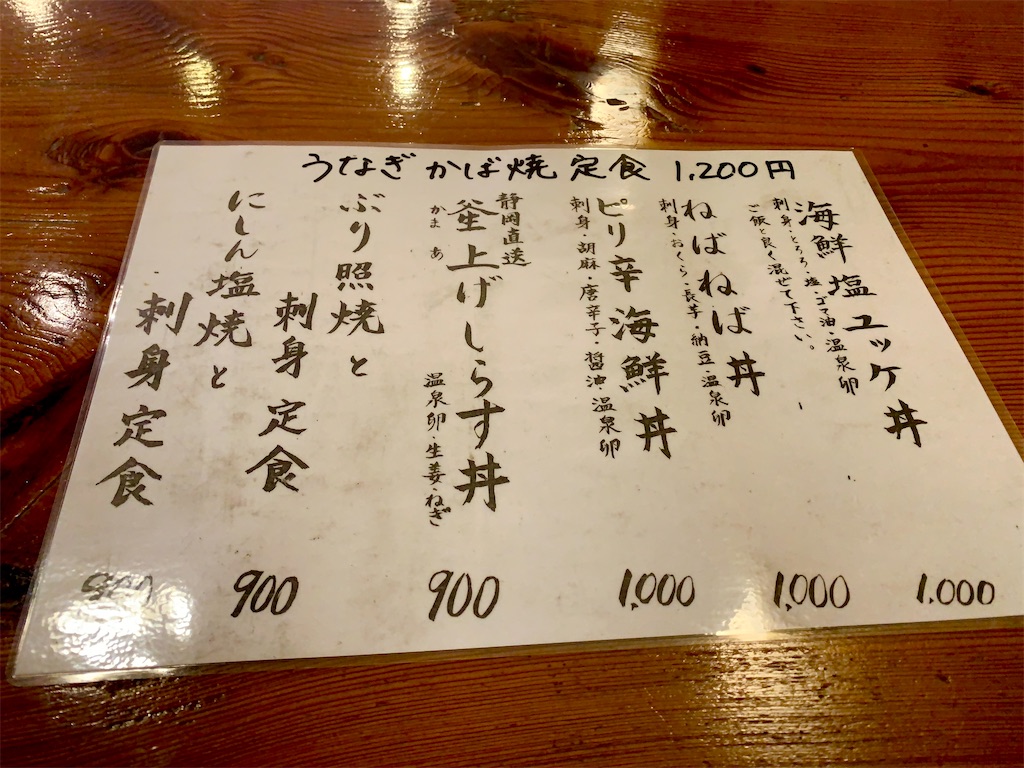 うなぎ かば焼 定食 1,200円
海鮮塩ユッケ丼
刺身・とろろ・塩・ゴマ油・温泉卵
ご飯と良く混ぜて下さい。
1,000
ねばねば丼
刺身・おくら・長芋・納豆・温泉卵
1,000
ピリ辛海鮮丼
刺身・胡麻・唐辛子・醤油・温泉卵
1,000
静岡直送
釜上げしらす丼
かま あ
温泉卵・生姜・ねぎ
900
ぶり照焼と
刺身定食
900
にしん塩焼と
刺身定食
900